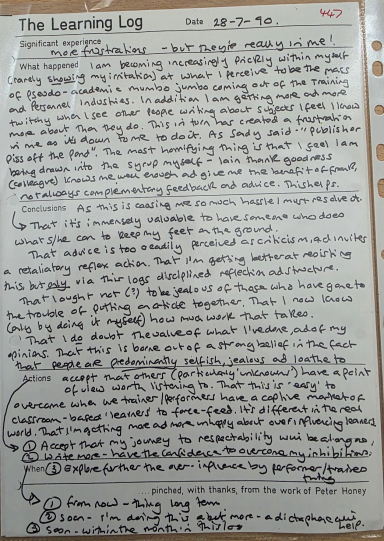 447
The Learning Log Date 28-7-90.
Significant experience
more frustrations - but they're really in me!
What happened I am becoming increasingly prickly within myself
(rarely showing my irritation) at what I perceive to be the mass
of pseudo-academic mumbo jumbo coming out of the Training
and Personnel Industries. In addition I am getting more and more
twitchy when I see other people writing about subjects I feel I know
more about than they do. This in turn has created a frustration
in me as it's down to me to do it. As Sandy said - "publish or
piss off the pond". The most horrifying thing is that I feel I am
being drawn into the syrup myself - Iain thank goodness
(colleague) knows me well enough and give me the benefit of frank,
not always complementary feedback and advice. This helps.
Conclusions As this is causing me so much hassle I must resolve it.
That it's immensely valuable to have someone who does
what s/he can to keep my feet on the ground.
That advice is too readily perceived as criticism, and invites
a retaliatory reflex action. That I'm getting better at resisting
this but only via this logs disciplined reflection and structure.
That I ought not (?) to be jealous of those who have gone to
the trouble of putting an article together. That I now know
(only by doing it myself) how much work that takes.
That I do doubt the value of what I've done, and of my
opinions. That this is borne out of a strong belief in the fact
that people are predominantly selfish, jealous and loathe to
Actions accept that others (particularly 'unknown') have a point
of view worth listening to. That this is 'easy' to
overcome when we trainer/performers have a captive market of
classroom-based learners to force-feed. It's different in the real
world. That I'm getting more and more unhappy about over influencing learners
① Accept that my journey to respectability will be a long one,
② Write more - have the confidence to overcome my inhibitions.
When ③ Explore further the over-influence by performer/trainer
thing
..... pinched, with thanks, from the work of Peter Honey
① from now - thing long term.
② soon - I'm doing this a bit more - a dictaphone will help.
③ soon - within the month in this log